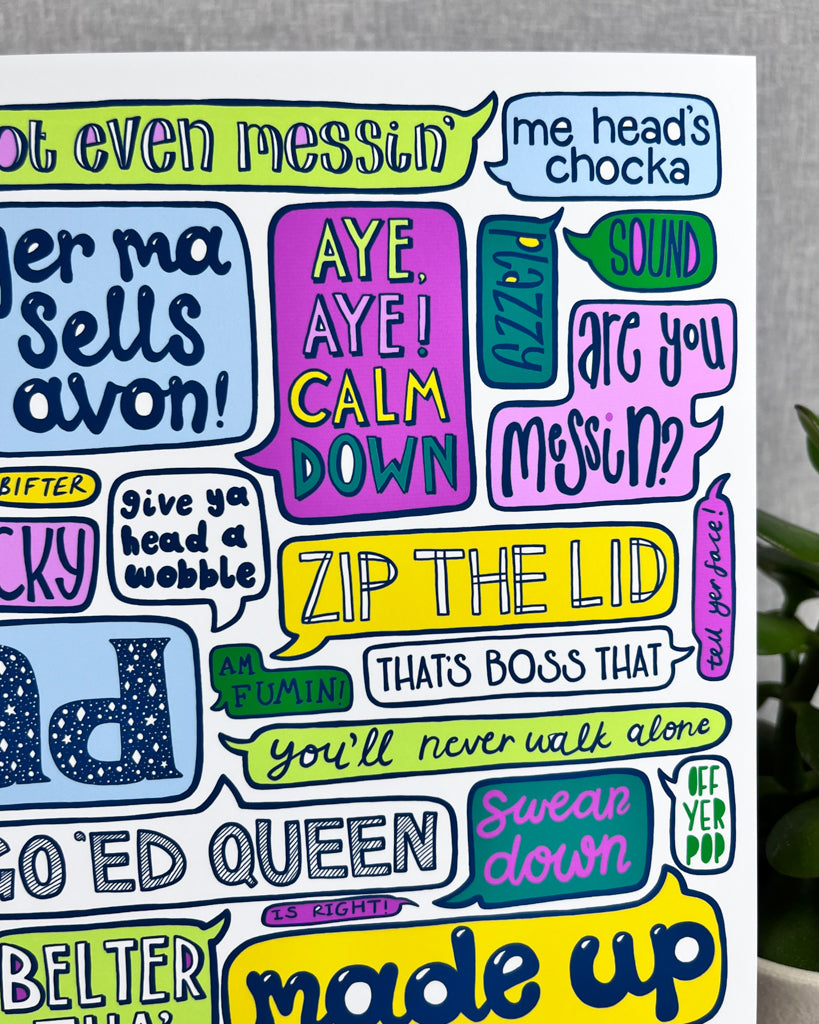 even messin'
me head's
chocka
yer ma
sells
avon!
AYE,
AYE!
CALM
DOWN
plazzy
SOUND
are you
messin?
BIFTER
give ya
head a
wobble
ZIP THE LID
tell yer face!
AM
FUMIN!
THAT'S BOSS THAT
you'll never walk alone
GO 'ED QUEEN
swear
down
OFF
YER
POP
IS RIGHT!
BELTER
THA'
made up